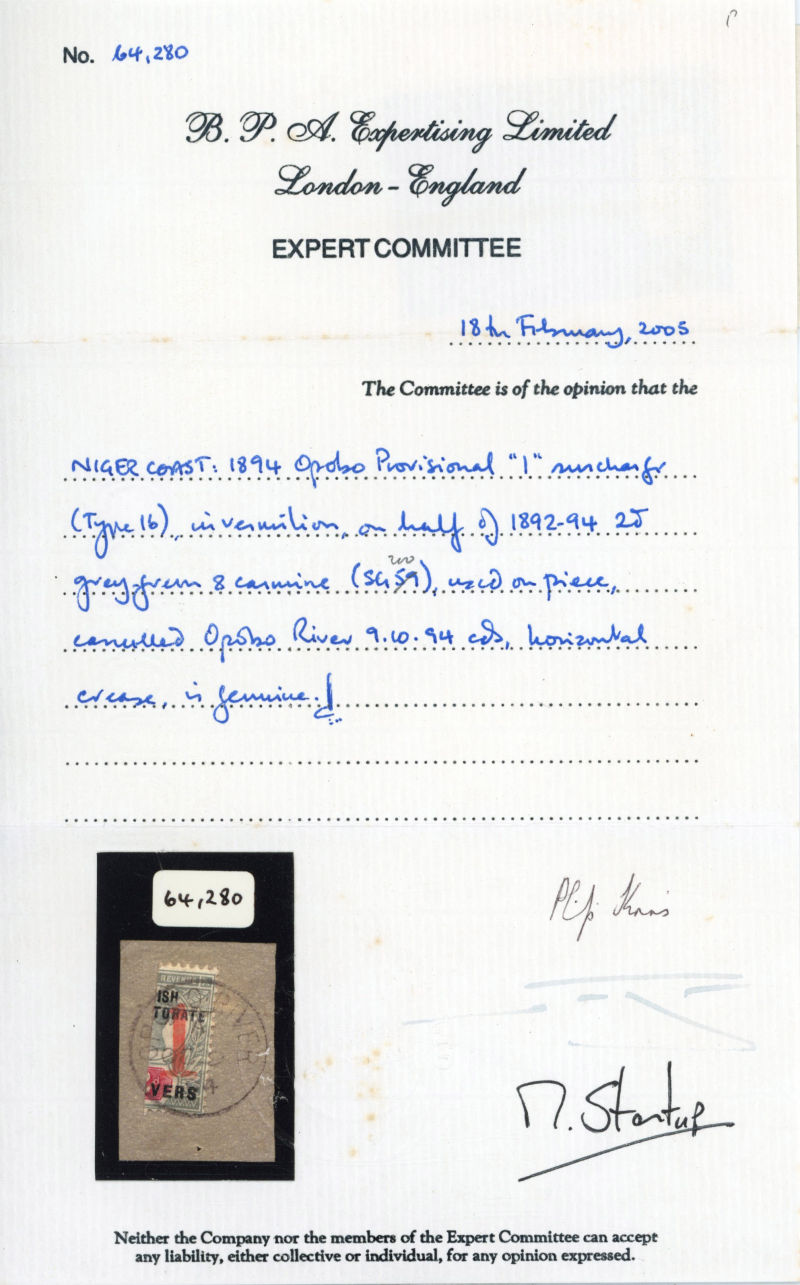 No. 64,280
B. P. A. Expertising Limited
London - England
EXPERT COMMITTEE
18th February, 2005
The Committee is of the opinion that the
NIGER COAST: 1894 Opobo Provisional "1" surcharge
(Type 16), in vermilion, on half of 1892-94 2d
grey-green & carmine (SG 59), used on piece,
cancelled Opobo River 9.10.94 cds, horizontal
crease, is genuine.
64,280
REVENUE
ISH
TORATE
1
VERS
M. Startup
Neither the Company nor the members of the Expert Committee can accept
any liability, either collective or individual, for any opinion expressed.